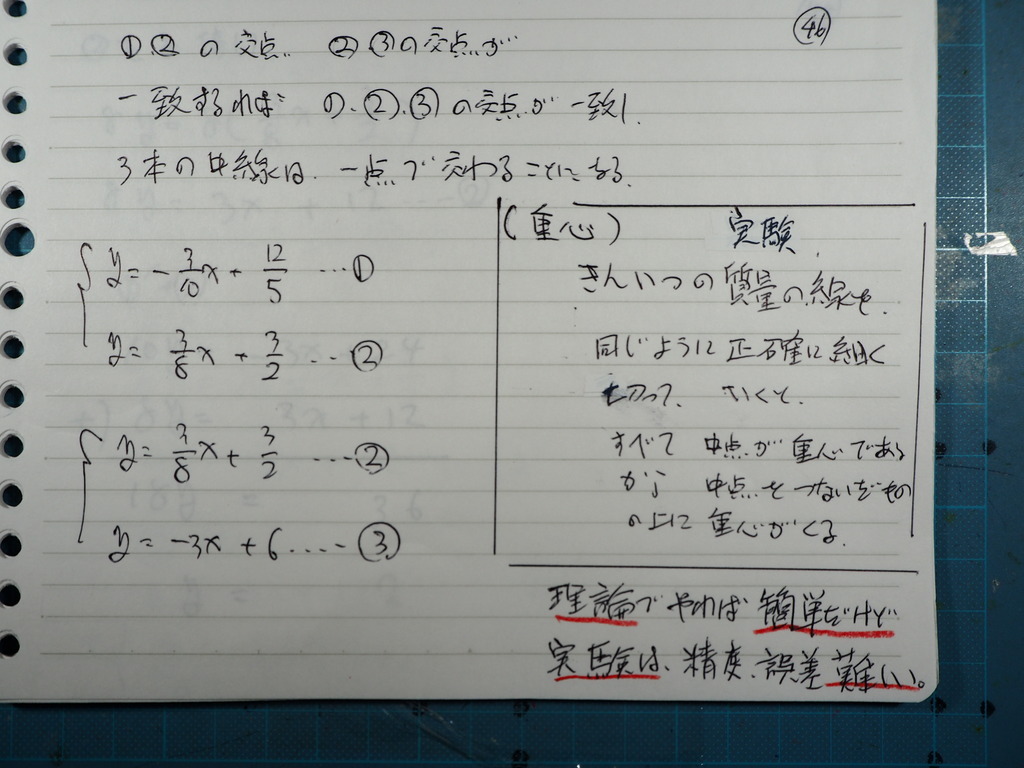 46
①②の交点 ②③の交点が
一致すれば ①、②、③の交点が一致し
3本の中線は、一点で交わることになる。
y = -3/10x + 12/5 …①
y = 3/8x + 3/2 …②
y = 3/8x + 3/2 …②
y = -3x + 6 …… ③
(重心) 実験
きんいつの質量の線を
同じように正確に細く
切って、 いくと、
すべて 中点が重心である
から 中点をつないだもの
の上に 重心がくる。
理論でやれば簡単だけど
実験は、精度、誤差難しい。